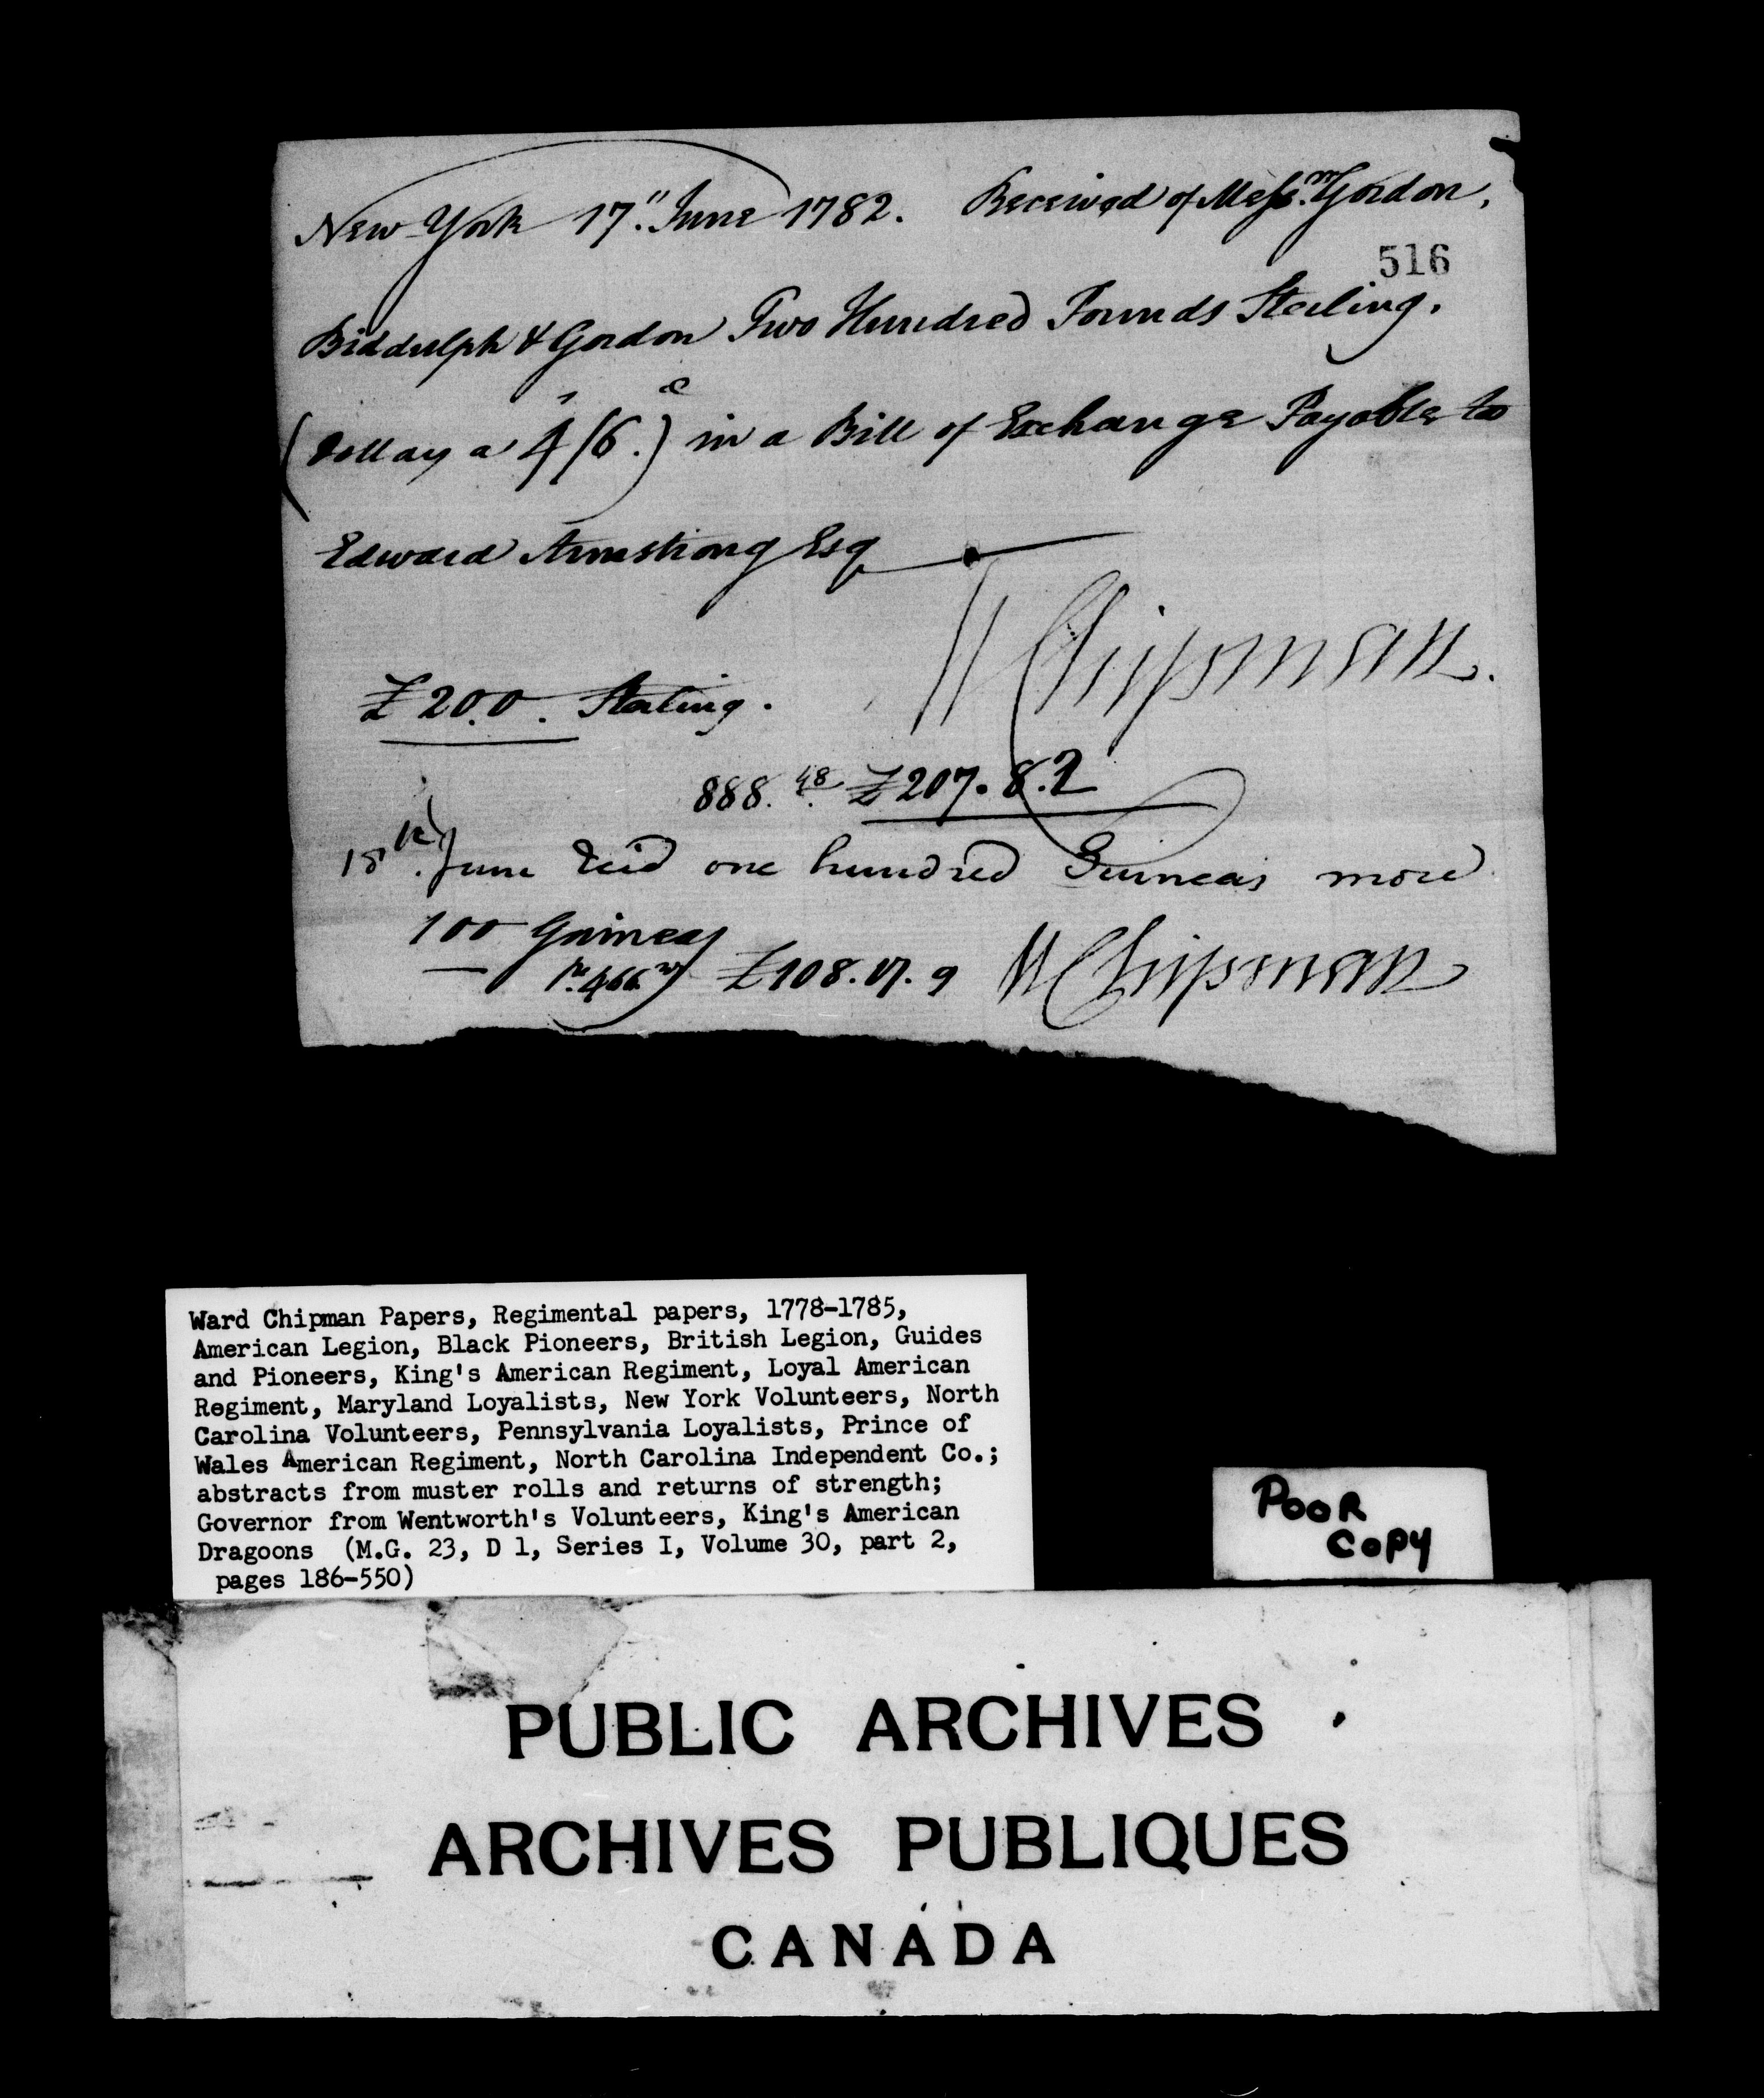 New York 17" June 1782. Received of Mess.rs Gordon,
516
Biddulph & Gordon Two Hundred Pounds Sterling.
(Dollars a 4/6.) in a Bill of Exchange Payable to
Edward Armstrong Esq
W Chipman.
£ 200. Sterling.
888. 48 £207.8.2
18th. June Recd one hundred Guineas more
100 Guineas
£108.17.9 W Chipman
Ward Chipman Papers, Regimental papers, 1778-1785,
American Legion, Black Pioneers, British Legion, Guides
and Pioneers, King's American Regiment, Loyal American
Regiment, Maryland Loyalists, New York Volunteers, North
Carolina Volunteers, Pennsylvania Loyalists, Prince of
Wales American Regiment, North Carolina Independent Co.;
abstracts from muster rolls and returns of strength;
Governor from Wentworth's Volunteers, King's American
Dragoons (M.G. 23, D 1, Series I, Volume 30, part 2,
pages 186-550)
POOR
COPY
PUBLIC ARCHIVES
ARCHIVES PUBLIQUES
CANADA